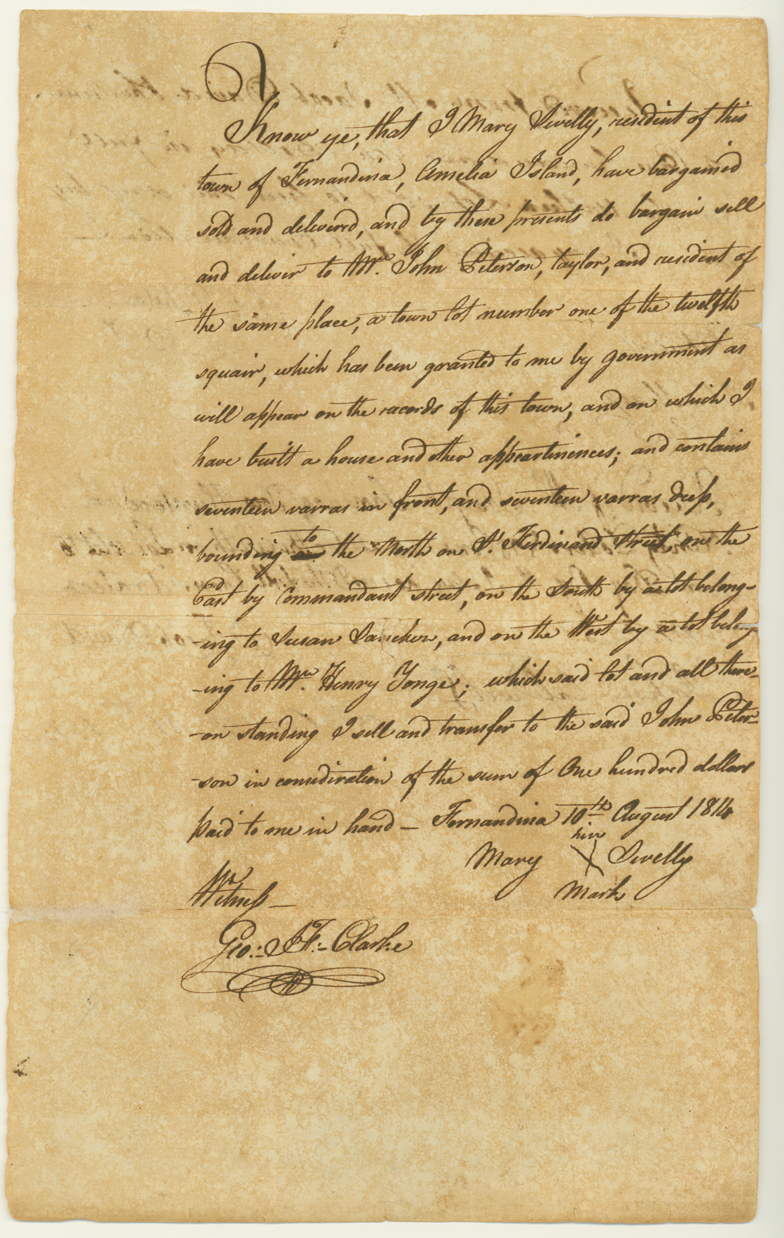 Know ye, that I Mary Sivelly, resident of this
town of Fernandina, Amelia Island, have bargained
sold and deliverd, and by these presents do bargain sell
and deliver to Mr. John Peterson, taylor, and resident of
the same place, a town lot number one of the twelfth
squair, which has been granted to me by government as
will appear on the records of this town, and on which I
have built a house and other appeartinences; and contains
seventeen varras in front, and seventeen varras deep,
bounding to the North on St. Ferdinand Street, on the
East by Commandant street, on the South by a lot belong-
-ing to Susan Sanchez, and on the West by a lot belong
-ing to Mr. Henry Yonge; which said lot and all there-
-on standing I sell and transfer to the said John Peter-
-son in consideration of the sum of One hundred dollars
paid to me in hand — Fernandina 10th August 1814
her
Mary X Sivelly
Mark
Witness —
Geo: J. F. Clarke